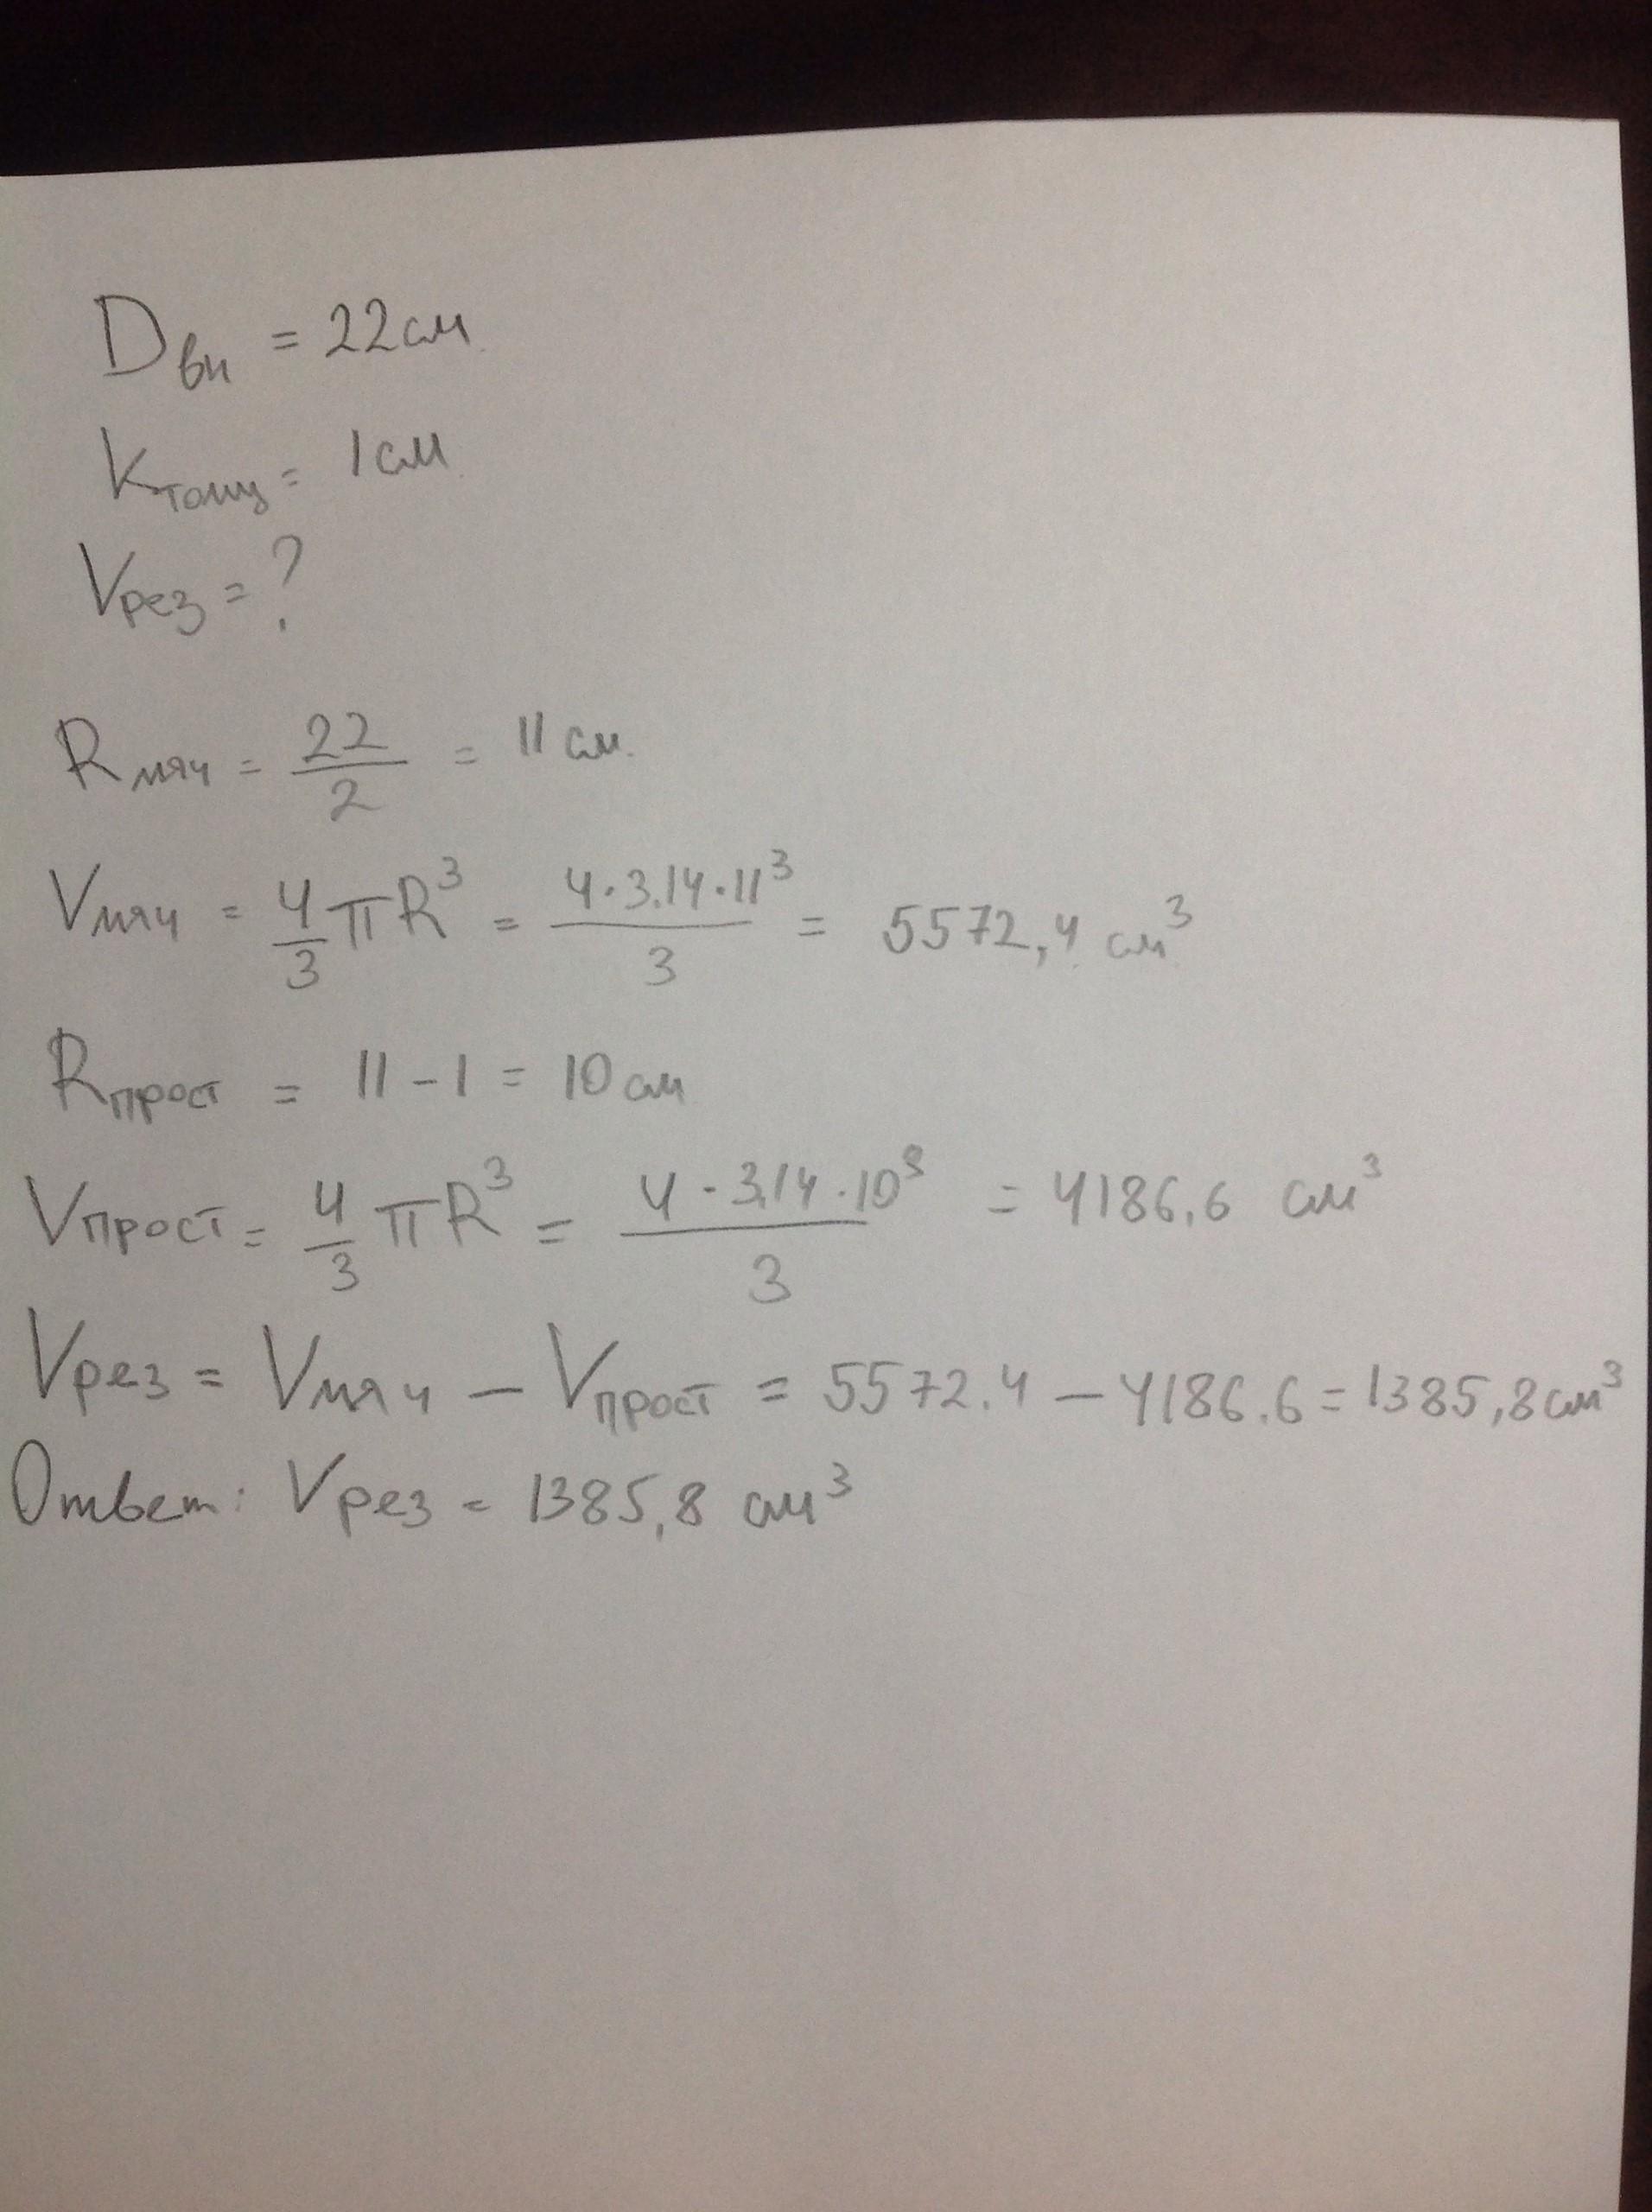 Dвн = 22 см
Kтолщ = 1 см
Vрез = ?
Rмяч = 22/2 = 11 см.
Vмяч = 4/3 πR³ = 4·3.14·11³/3 = 5572,4 см³
Rпрост = 11 - 1 = 10 см
Vпрост = 4/3 πR³ = 4·3,14·10³/3 = 4186,6 см³
Vрез = Vмяч – Vпрост = 5572.4 – 4186.6 = 1385,8 см³
Ответ: Vрез = 1385,8 см³